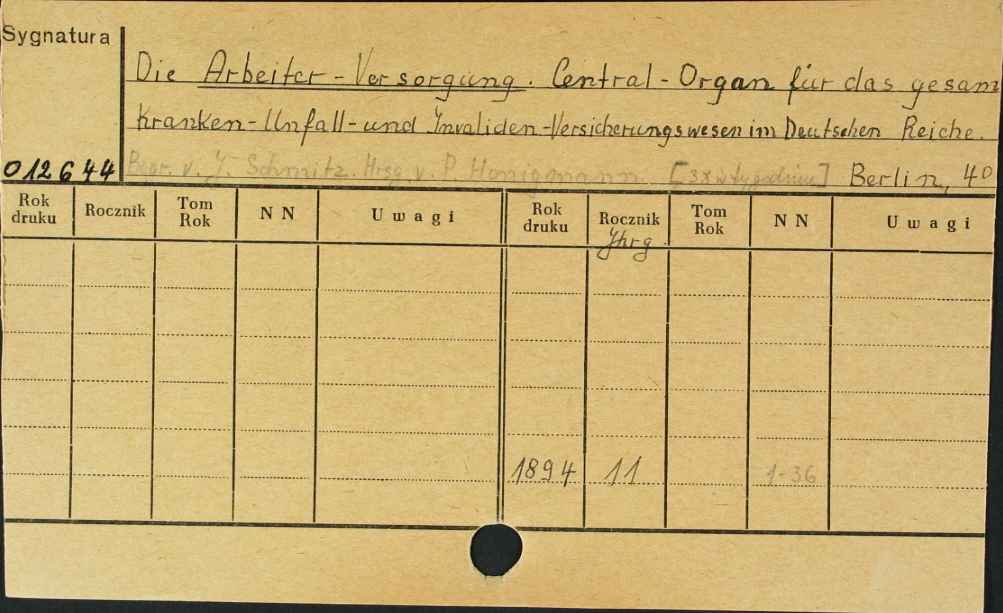 Sygnatura
Die Arbeiter-Versorgung. Central-Organ für das gesam
Kranken-Unfall-und Invaliden-Versicherungswesen im Deutschen Reiche.
012644 Begr. v. J. Schmitz. Hrsg. v. P. Honigmann. [3x w tygodniu] Berlin, 4°
Rok druku Rocznik Tom Rok NN Uwagi Rok druku Rocznik Tom Rok NN Uwagi
Jhrg
1894 11 1-36